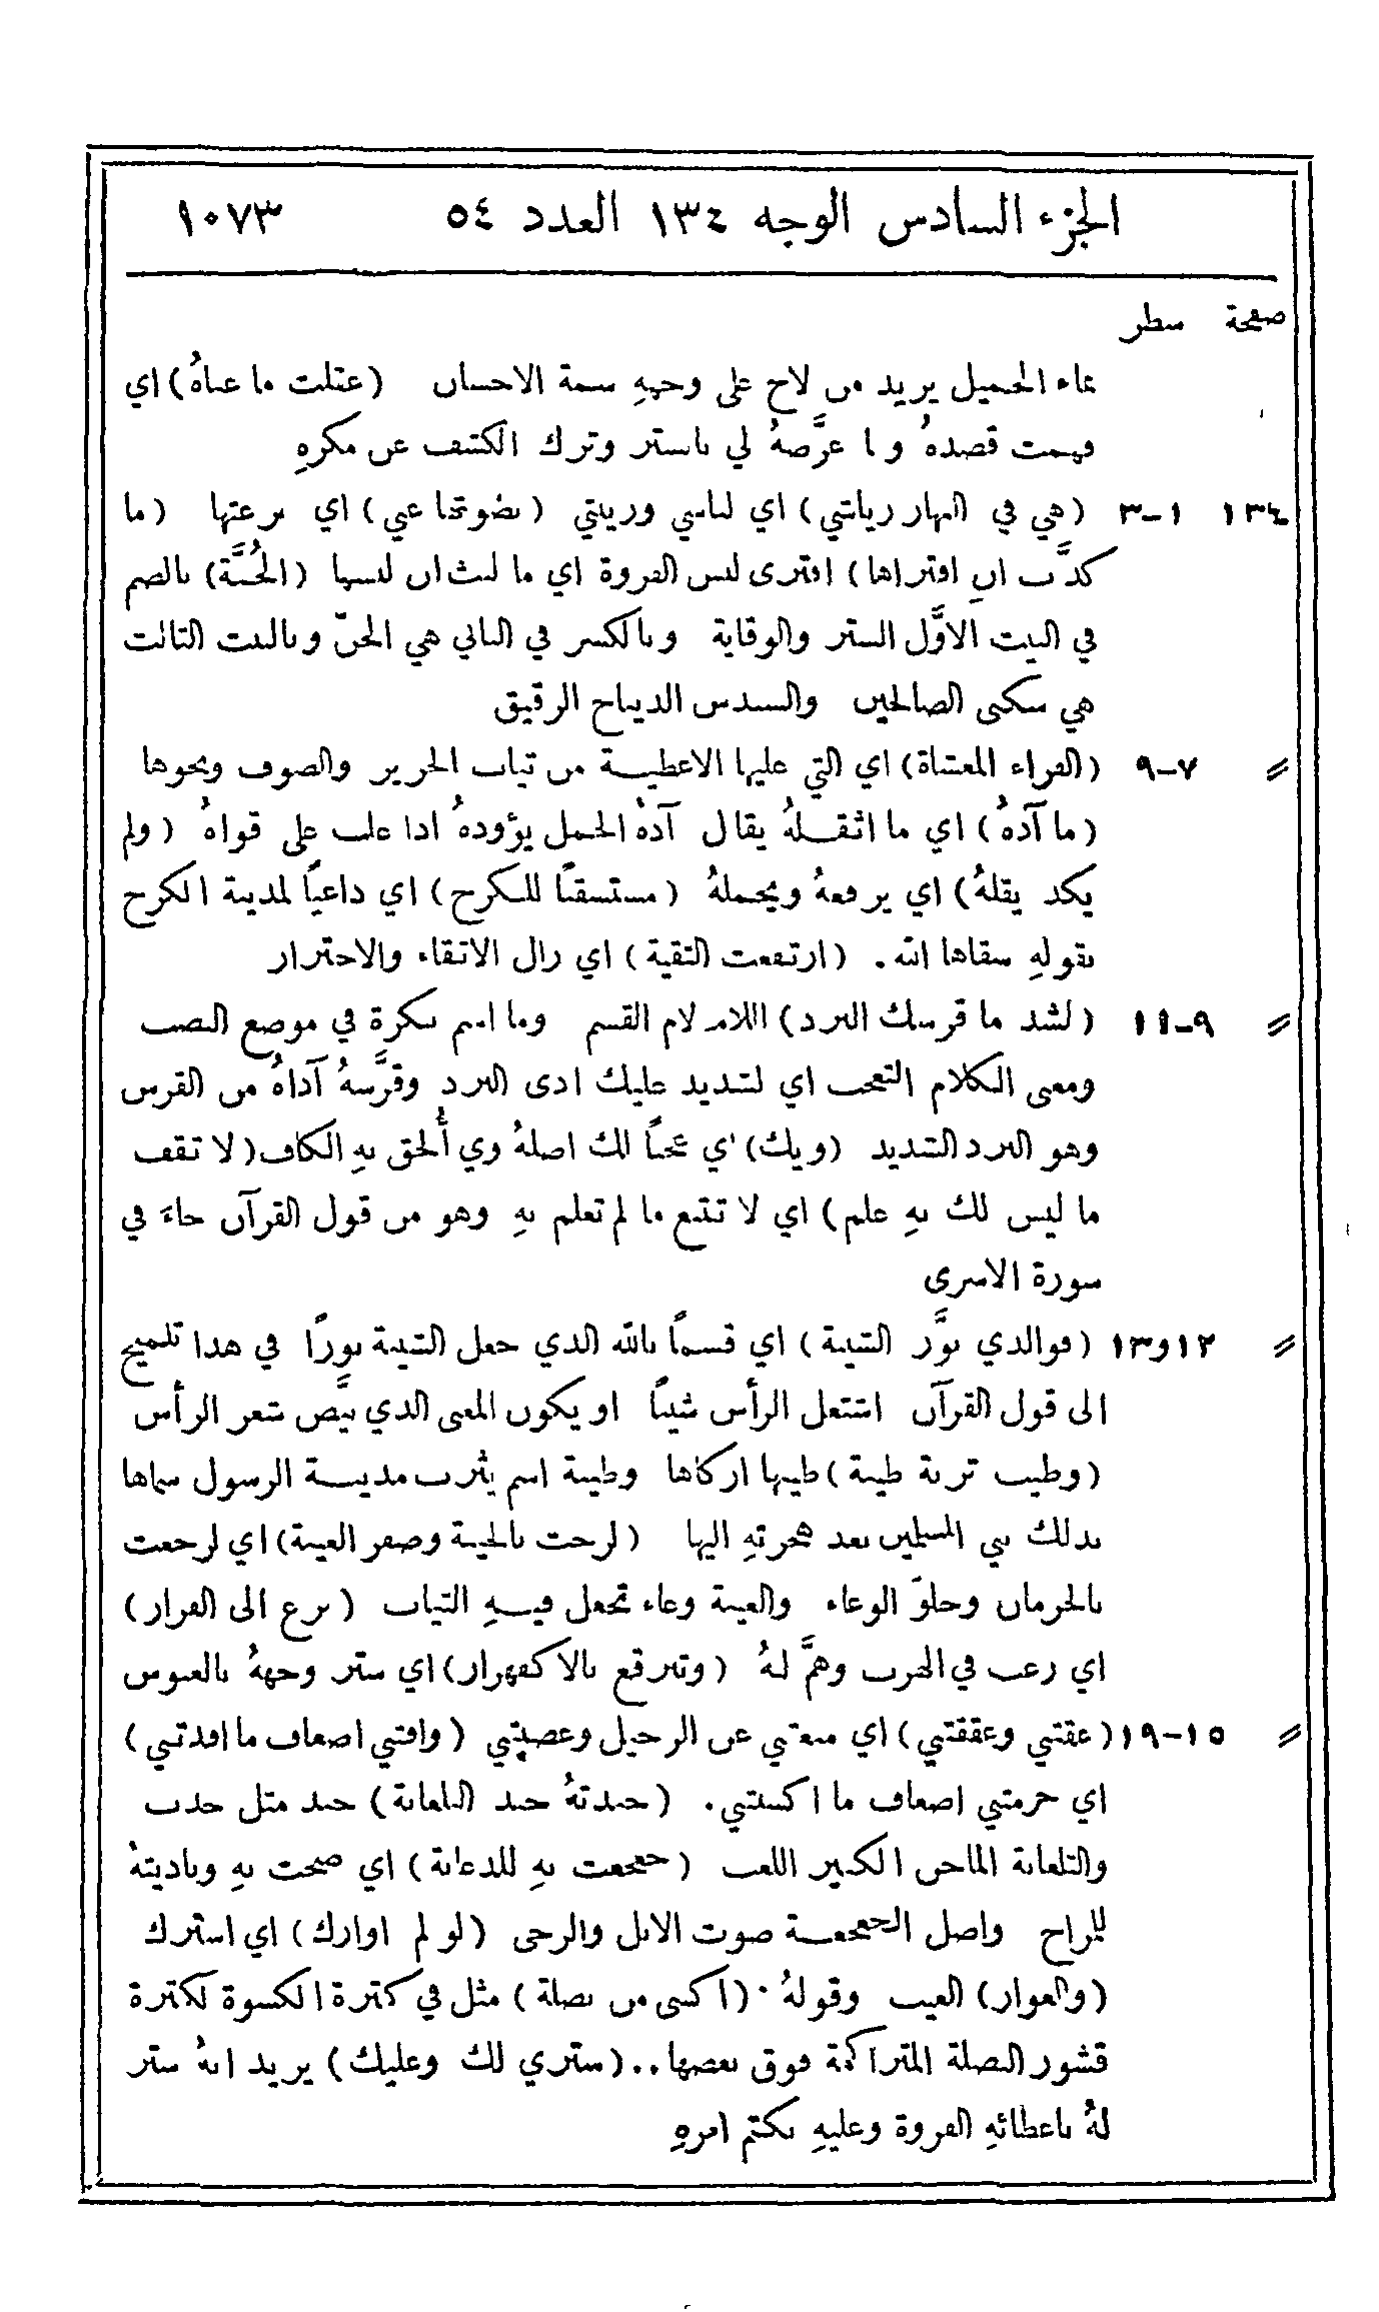 الجزء السادس الوجه ١٣٤ العدد ٥٤ ١٠٧٣
صفحة سطر
بماء الجميل يريد من لاح على وجههِ سمة الاحسان (عقلت ما عناهُ) اي
فهمت قصدهُ وما عرَّضهُ لي بالستر وترك الكشف عن مكرهِ
١٣٤ ١-٣ (هي في النهار رياشي) اي لباسي وزينتي (نضوتها عني) اي نزعتها (ما
كذَّب ان افتراها) افترى لبس الفروة اي ما لبث ان لبسها (الجُنَّة) بالضم
في البيت الاوَّل الستر والوقاية وبالكسر في الثاني هي الجنّ وبالبيت الثالث
هي سكنى الصالحين والسندس الديباج الرقيق
〃 ٧-٩ (الفراء المغشاة) اي التي عليها الاغطيـة من ثياب الحرير والصوف ونحوها
(ما آدهُ) اي ما اثقـلهُ يقال آدهُ الحمل يؤودهُ اذا غلب على قواهُ (ولم
يكد يقلهُ) اي يرفعهُ ويحملهُ (مستسقيًا للكرج) اي داعيًا لمدينة الكرج
بقولهِ سقاها الله. (ارتفعت التقية) اي زال الاتقاء والاحتراز
〃 ٩-١١ (لشد ما قرسك البرد) اللام لام القسم وما اسم نكرة في موضع النصب
ومعنى الكلام التعجب اي لشديد عليك اذى البرد وقرَّسهُ آذاهُ من القرس
وهو البرد الشديد (ويك) اي عجبًا لك اصلهُ وي أُلحق بهِ الكاف (لا تقف
ما ليس لك بهِ علم) اي لا تتبع ما لم تعلم بهِ وهو من قول القرآن جاءَ في
سورة الاسرى
〃 ١٢و١٣ (فوالذي نوَّر الشيبة) اي قسمًا بالله الذي جعل الشيبة نورًا في هذا تلميح
الى قول القرآن اشتعل الرأس شيبًا او يكون المعنى الذي بيَّض شعر الرأس
(وطيب تربة طيبة) طيبها ازكاها وطيبة اسم يثرب مدينـة الرسول سماها
بذلك نبي المسلمين بعد هجرتهِ اليها (لرحت بالخيبة وصفر العيبة) اي لرجعت
بالحرمان وخلوّ الوعاء والعيبة وعاء تجعل فيـهِ الثياب (نزع الى الفرار)
اي رغب في الهرب وهمَّ لهُ (وتبرقع بالاكفهرار) اي ستر وجههُ بالعبوس
〃 ١٥-١٩ (عقتني وعققتني) اي منعتني عن الرحيل وعصيتني (وافتني اضعاف ما افدتني)
اي حرمتني اضعاف ما اكسبتني. (جبذتهُ جبذ التلعابة) جبذ مثل جذب
والتلعابة الماجن الكثير اللعب (جعجعت بهِ للدعابة) اي صحت بهِ وناديتهُ
للمزاح واصل الجعجعـة صوت الابل والرحى (لو لم اوارك) اي استرك
(والعوار) العيب وقولهُ. (اكسى من بصلة) مثل في كثرة الكسوة لكثرة
قشور البصلة المتراكمة فوق بعضها.. (ستري لك وعليك) يريد انهُ ستر
لهُ باعطائهِ الفروة وعليهِ بكتم امرهِ